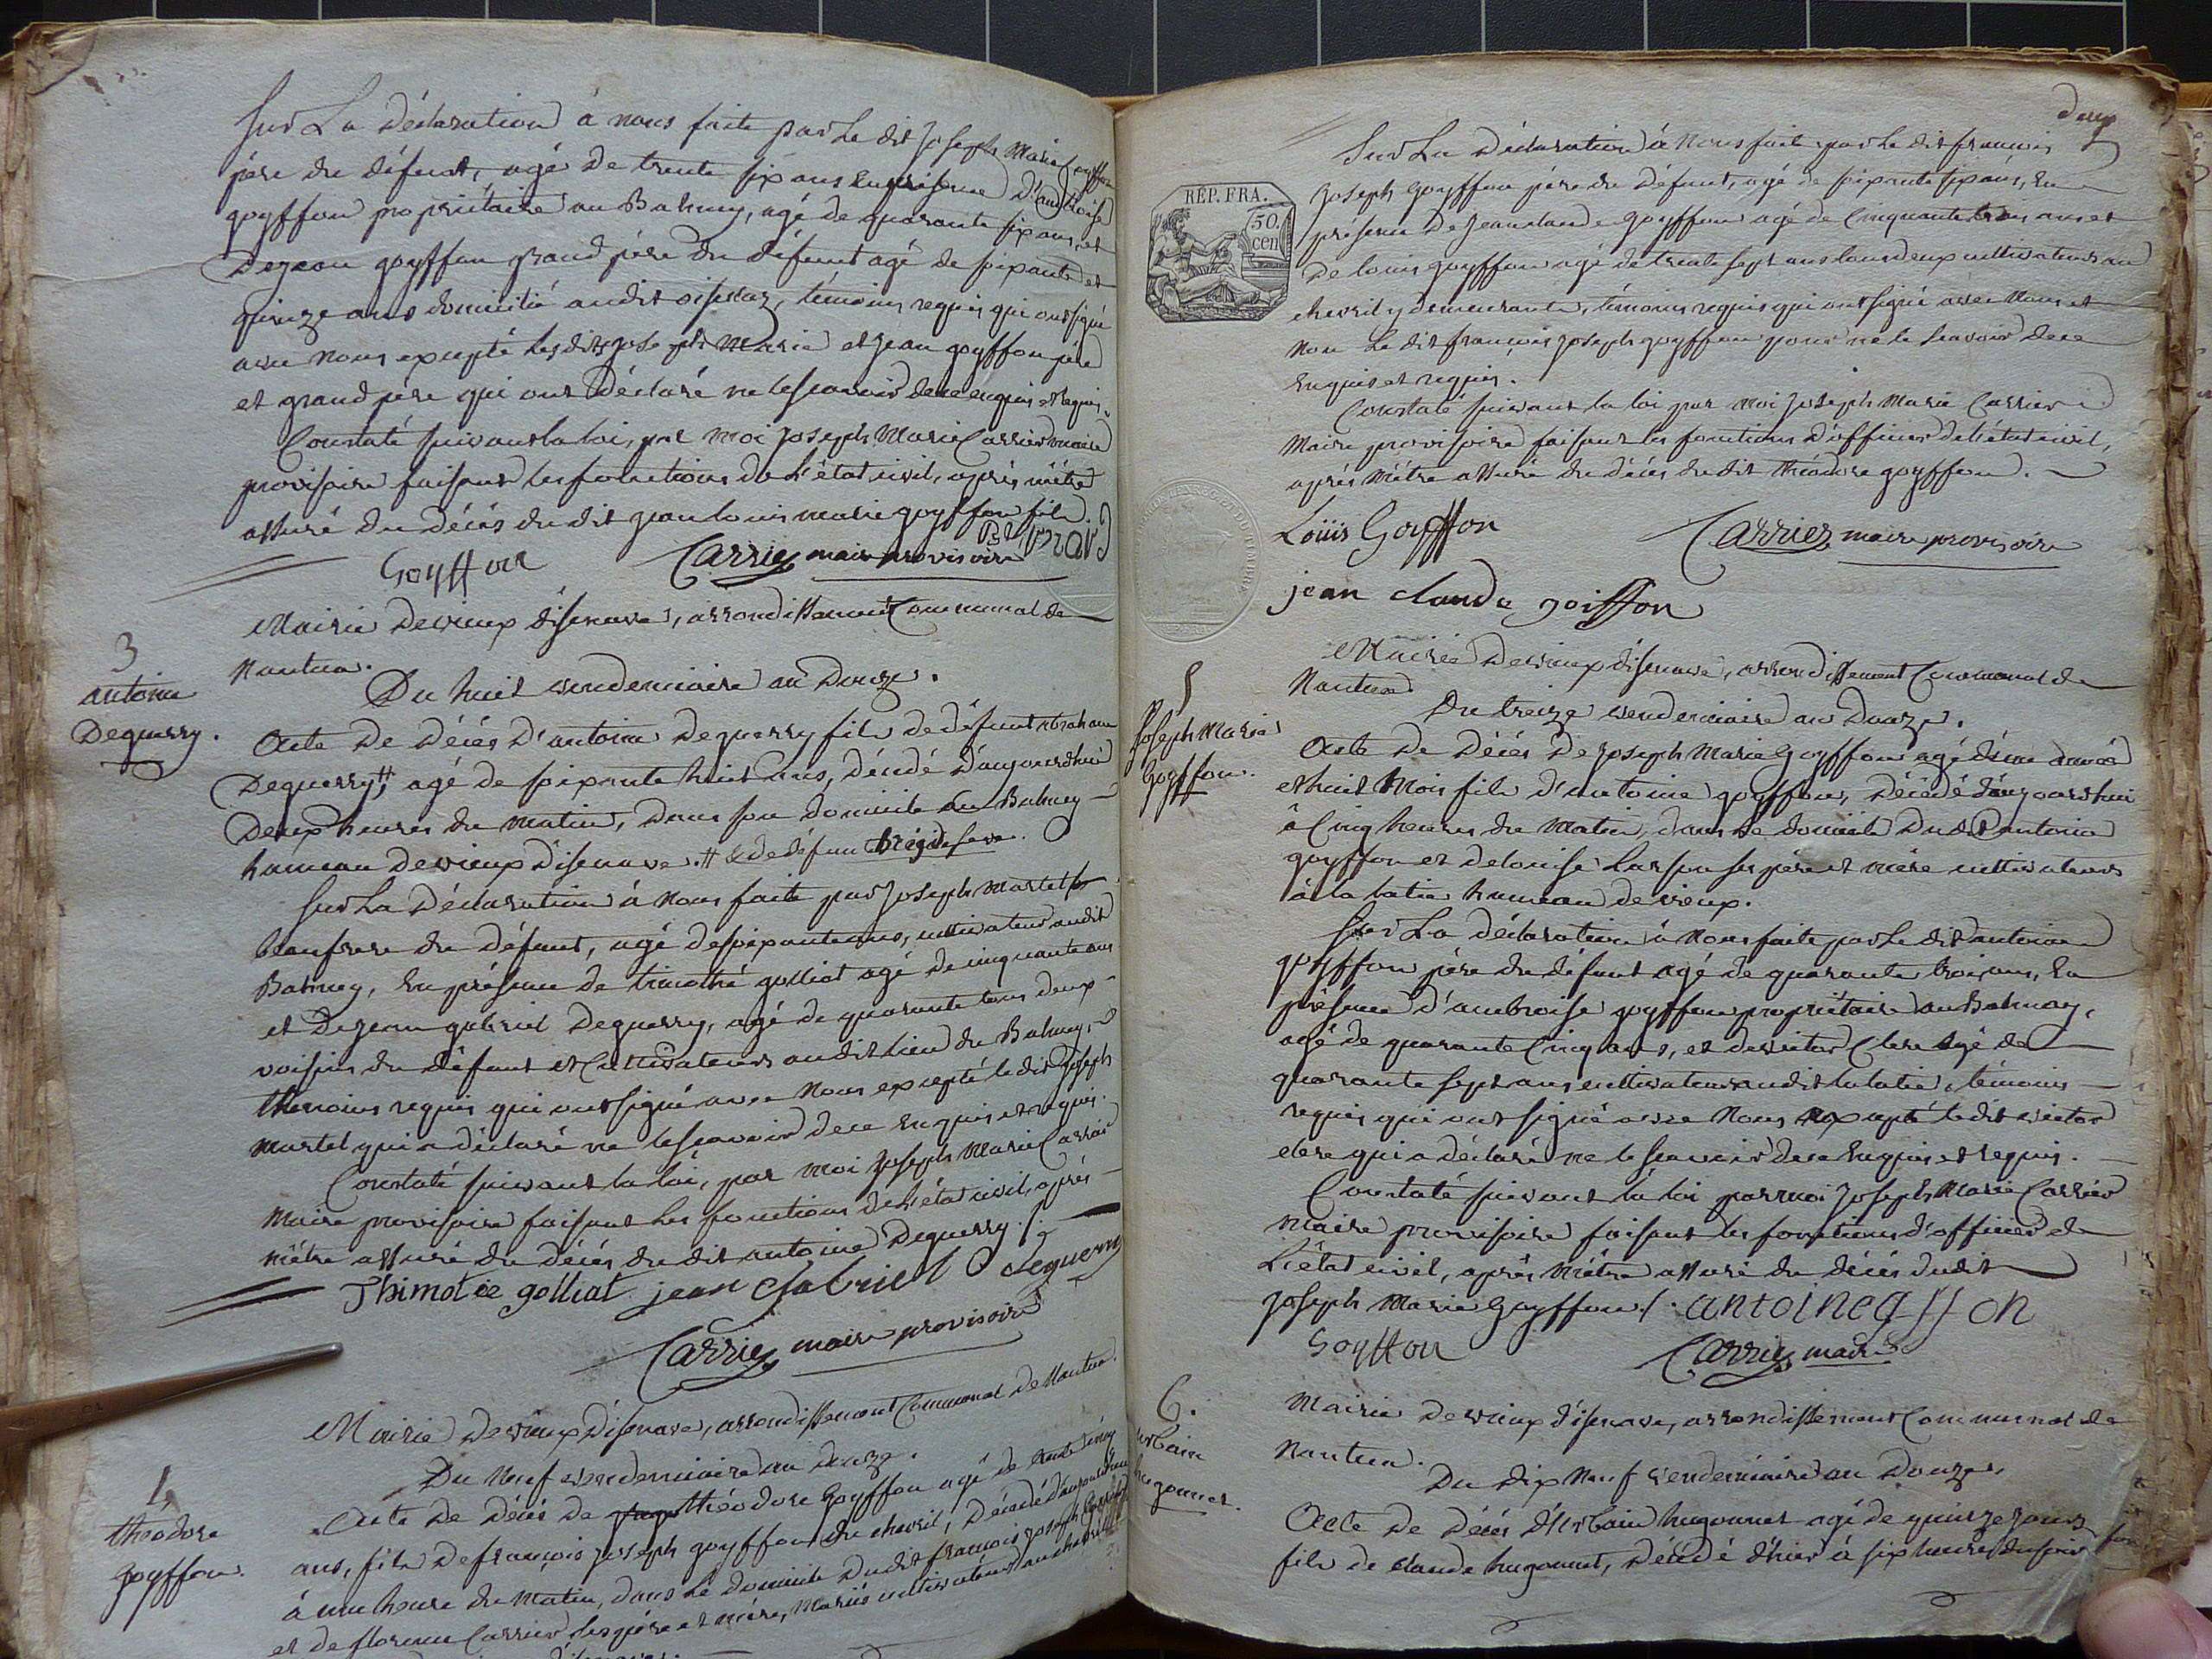 Sur La Déclaration à nous faite par Le dit Joseph Marie Goyffon
père du défunt, agé de trente six ans En présence D'ambroise
goyffon propriétaire au Balmay, agé de quarante six ans, et
De jean goyffon grand père du défunt agé de soixante et
quinze ans domicilié audit, témoins requis qui ont signé
avec nous excepté Les dits joseph Marie et jean goyffon père
et grand père qui ont Déclaré ne le scavoir de ce enquis et requis.
Constaté suivant la loi, par moi Joseph Marie Carrier maire
provisoire faisant les fonctions de L'état civil, après m'être
assuré du Décès du dit jean louis marie goyffon fils.
Goyffon Carrier maire provisoire
Mairie De vieux d'isenave, arrondissement Communal de
Nantua.
Du huit vendemiaire an Douze.
3
antoine
Deguerry.
Acte De Décès D'antoine Deguerry fils de défunt abraham
Deguerry # agé de soixante huit ans, décédé D'aujourdhui
Deux heures du matin, Dans son domicile au Balmay
hameau De vieux D'isenave. # & de défunte brigide seve.
Sur La Déclaration à nous faite par Joseph Martel
beaufrere du défunt, agé de soixante ans, cultivateur audit
Balmay, En présence de timothé golliat agé de cinquante ans
et De jean gabriel Deguerry, agé de quarante tous deux
voisins du défunt et Cultivateurs audit lieu du Balmay,
themoins requis qui ont signé avec nous excepté le dit Joseph
Martel qui a déclaré ne le scavoir de ce Enquis et requis.
Constaté suivant la loi, par moi Joseph Marie Carrier
Maire provisoire faisant les fonctions de L'état civil, après
m'être assuré du décès du dit antoine Deguerry ./.
Thimotée golliat jean Gabriel Deguerry
Carrier maire provisoire
Mairie De vieux D'isenave, arrondissement Communal de Nantua.
Du Neuf vendemiaire an douze.
4
théodore
goyffon.
Acte De Décès de théodore Goyffon agé de trente cinq
ans, fils De françois joseph goyffon du chevril, Décédé d'aujourdhui
à une heure du Matin, dans Le Domicile Dudit françois joseph Goyffon
et de florence Carrier ses père et mère, Mariés cultivateurs au chevril
deux
REP. FRA.
50.
cen
Sur La Déclaration à nous faite par Le dit françois
Joseph goyffon père du Défunt, agé de soixante six ans, En
présence De jean claude goyffon agé de Cinquante trois ans et
De louis goyffon agé de trente sept ans tous deux cultivateurs au
chevril y demeurants, témoins requis qui ont signé avec Nous et
Non Le dit françois joseph goyffon pour ne le scavoir de ce
Enquis et requis.
Constaté suivant la loi par moi Joseph Marie Carrier
Maire provisoire faisant les fonctions d'officier de L'état civil,
après M'être assuré du décès du dit théodore goyffon.
Loüis Goyffon Carrier maire provisoire
jean claude goiffon
Mairie De vieux d'isenave, arrondissement Communal de
Nantua
Du treize vendemiaire an Douze.
5
Joseph Marie
Goyffon.
Acte De Décès De Joseph Marie Goyffon agé d'une année
et huit Mois fils d'antoine goyffon, Décédé d'aujourdhui
à Cinq heures du Matin, dans Le domicile Dudit antoine
goyffon et de louise Larson ses père et mère cultivateurs
à la latie hameau de vieux.
Sur La déclaration à Nous faite par Le dit antoine
goyffon père du défunt agé de quarante trois ans, En
présence d'ambroise goyffon propriétaire au Balmay,
agé de quarante Cinq ans, et de victor Clere agé de
quarante sept ans cultivateur audit la latie, témoins
requis qui ont signé avec Nous excepté le dit victor
clere qui a déclaré ne le scavoir de ce Enquis et requis.
Constaté suivant la loi par moi Joseph Marie Carrier
maire provisoire faisant les fonctions d'officier de
L'état civil, après M'être assuré du décès dudit
Joseph Marie Goyffon ./. antoine gffon
Goyffon Carrier maire
Mairie De vieux d'isenave, arrondissement Communal de
Nantua.
Du Dix Neuf vendemiaire an Douze.
6.
urbain
hugonnet.
Acte De Décès d'Urbain hugonnet agé de quinze jours
fils de claude hugonnet, Décédé d'hier à six heures du soir